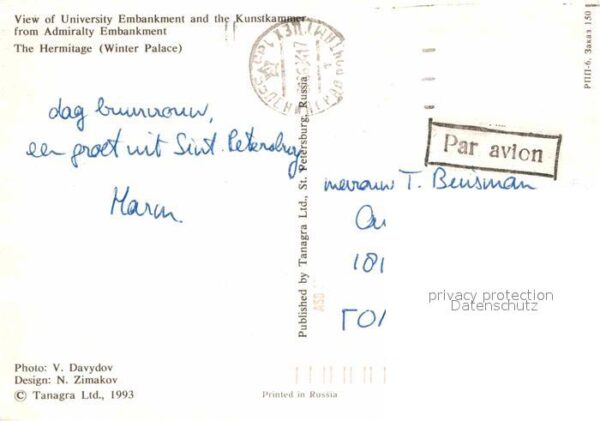 View of University Embankment and the Kunstkammer
from Admiralty Embankment
The Hermitage (Winter Palace)
dag buurvrouw,
een groet uit Sint Petersburg
Marm
Published by Tanagra Ltd., St. Petersburg, Russia
РПП-6. Заказ 150
Par avion
mevrouw T. Bensman
181
privacy protection
Datenschutz
Photo: V. Davydov
Design: N. Zimakov
© Tanagra Ltd., 1993
Printed in Russia